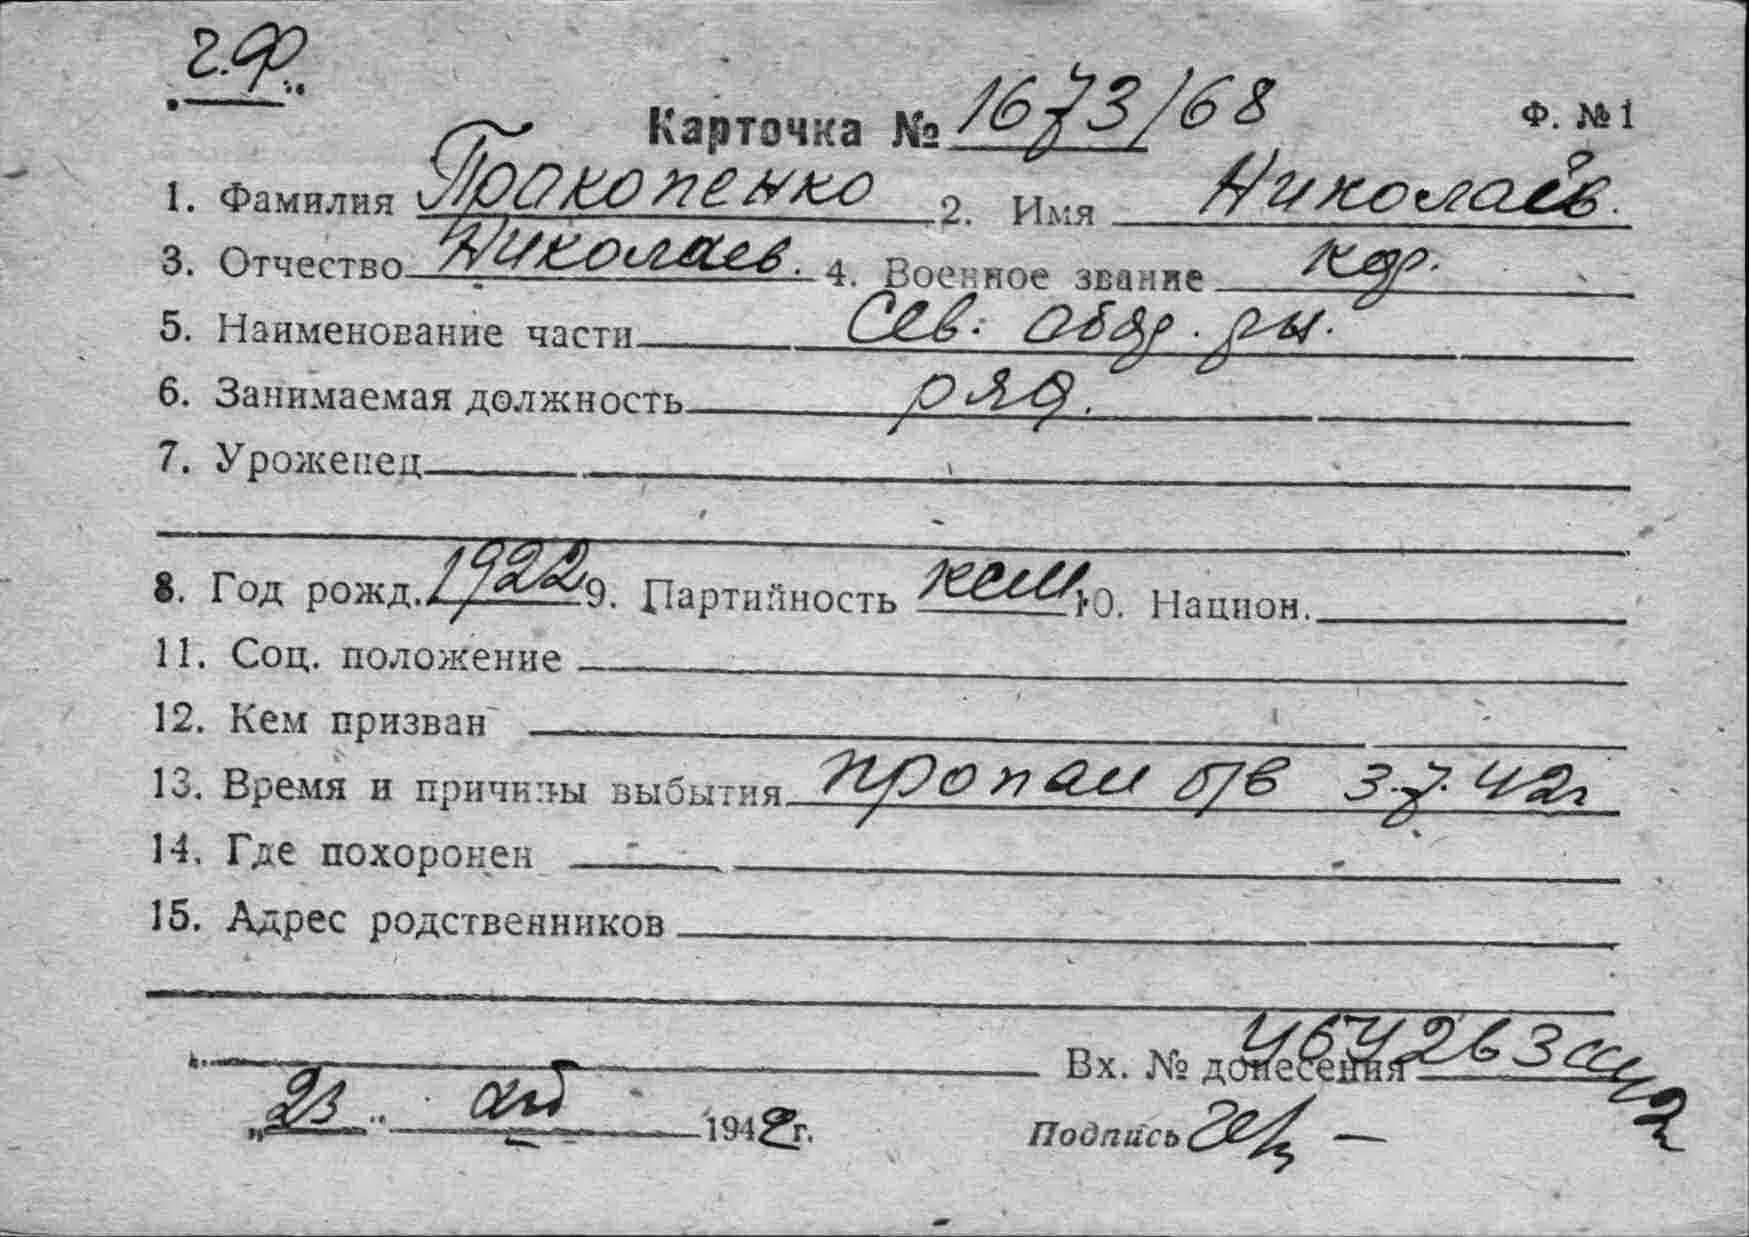 ч.ф.
Карточка № 1673/68 Ф. № 1
1. Фамилия Прокопенко 2. Имя Николай
3. Отчество Николаев. 4. Военное звание кр.
5. Наименование части Сев.
6. Занимаемая должность ряд.
7. Уроженец
8. Год рожд. 1922 9. Партийность ксм 10. Национ.
11. Соц. положение
12. Кем призван
13. Время и причины выбытия пропал б/в 3.7.42г
14. Где похоронен
15. Адрес родственников
Вх. № донесения
„23“ 1942 г. Подпись